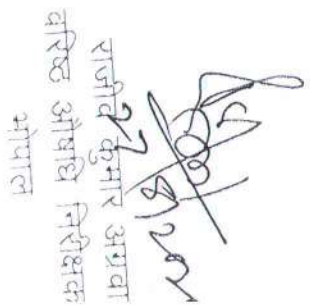 राजीव कुमार अग्रवा
वरिष्ठ औषधि निरीक्षक
भोपाल